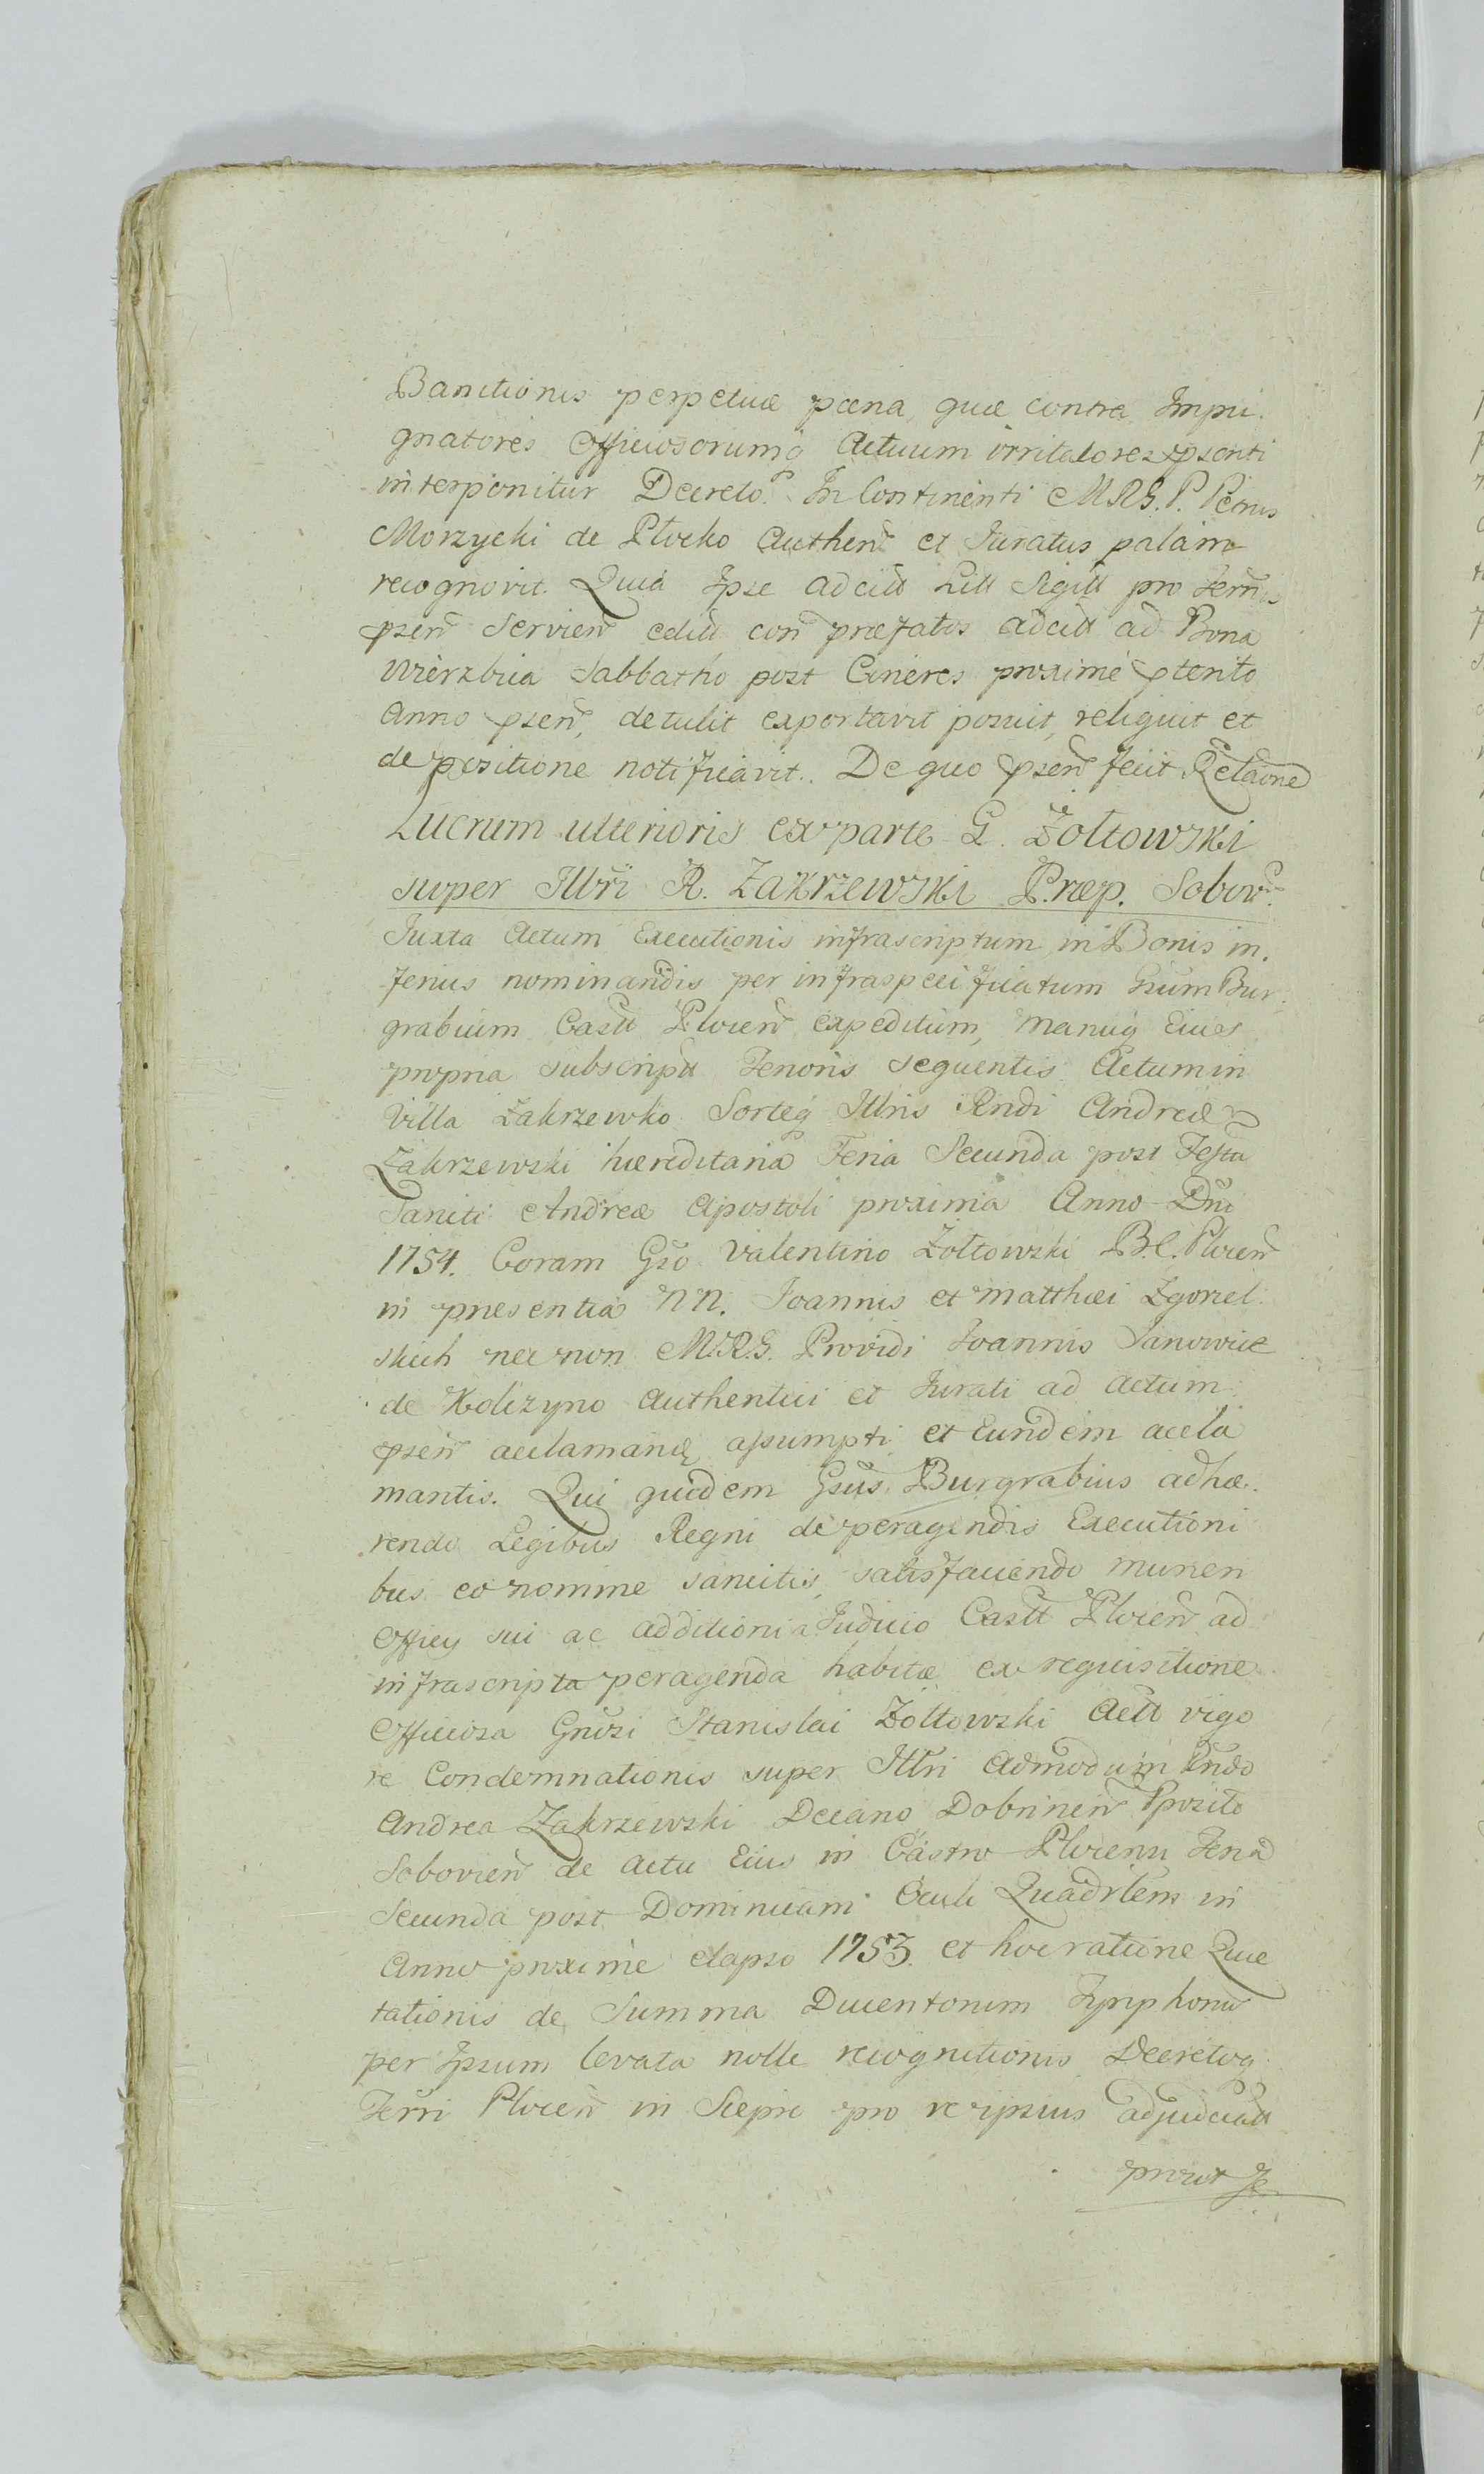 Banitionis perpetuæ pœna, quæ contra Impu.
gnatores Officiosorumq Actuum irritatores psenti
interponitur Decreto. In Continenti MRG. P. Petrus
Morzycki de Płocko Authen et Juratus palam
recognovit. Quia Ipse ad citt Litt Sigill pro Termis
psen Servien editt con præfatos adcitt ad Bona
Wierzbica Sabbatho post Cineres proxime pterito
Anno psen, detulit exportavit posuit, reliquit et
de positione notificavit. De quo psen fecit Relaone
Lucrum ulterioris ex parte G. Żołtowski
super Illri R. Zakrzewski Præp. Sobow.
Juxta Actum Executionis infrascriptum in Bonis in.
ferius nominandis per infraspecificatum Gsum Bur.
grabium Castt Plocen expeditum, manuq Eius
propria subscriptt Tenoris sequentis. Actum in
Villa Zakrzewko Sorteq Illris Rndi Andreæ
Zakrzewski hæreditaria Feria Secunda post Festu
Sancti Andreæ Apostoli proxima Anno Dni
1754. Coram Gso Valentino Żołtowski B.C. Plocen
in presentia NN. Joannis et Matthæi Zgorzel.
skich nec non M.R.G. Providi Joannis Janowicz
de Kolczyno Authentici et Jurati ad Actum
psen acclamand assumpti et Eundem accla
mantis. Qui quidem Gsus Burgrabius adhæ.
rendo Legibus Regni de peragendis Executioni
bus eo nomine sancitis, satisfaciendo muneri
Officy sui ac additioni a Judicio Castt Plocen ad
infrascripta peragenda habitæ ex requisitione
Officiosa Gnosi Stanislai Żołtowski Actt vigo
re Condemnationis super Illri Admodum Rndo
Andrea Zakrzewski Decano Dobrinen Pposito
Sobovien de Actu Eius in Castro Plocensi Feria
Secunda post Dominicam Oculi Quadrlem in
Anno proxime elapso 1753. et hoc ratione Quie
tationis de Summa Ducentorum Tymphonu
per Ipsum levata nolle recognitionis Decretoq
Terri Plocen in Sieprc pro re ipsius adjudicatt
prout Je